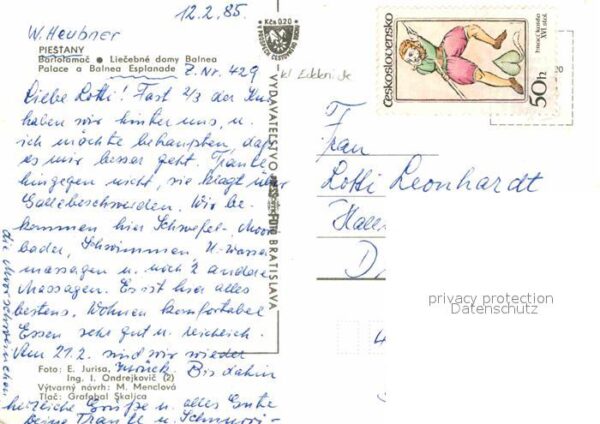 12.2.85.
W. Heubner
PIEŠŤANY
Bartolomač • Liečebné domy Balnea
Palace a Balnea Esplanade
Z. Nr. 429
Liebe Lotti! Fast 2/3 der Kur
haben wir hinter uns, u.
ich möchte behaupten, daß
es mir besser geht. Trautle
hingegen nicht, sie klagt über
Gallebeschwerden. Wir be-
kommen hier Schwefel-, Moor-
bäder, Schwimmen, U-wasser
massagen u. noch 2 andere
Massagen. Es ist hier alles
bestens. Wohnen komfortabel
Essen sehr gut u. reichlich.
Am 21.2. sind wir wieder
zurück. Bis dahin
herzliche Grüße u. alles Gute
Deine Trautle u.
Foto: E. Jurisa,
Ing. I. Ondrejkovič (2)
Výtvarný návrh: M. Menclová
Tlač: Grafobal Skalica
die
Kčs 0,20
VYDAVATEĽSTVO
BRATISLAVA
Československo
husací kanón
XVI. stol.
50h
20
Frau
Lotti Leonhardt
Hall
D
4
privacy protection
Datenschutz